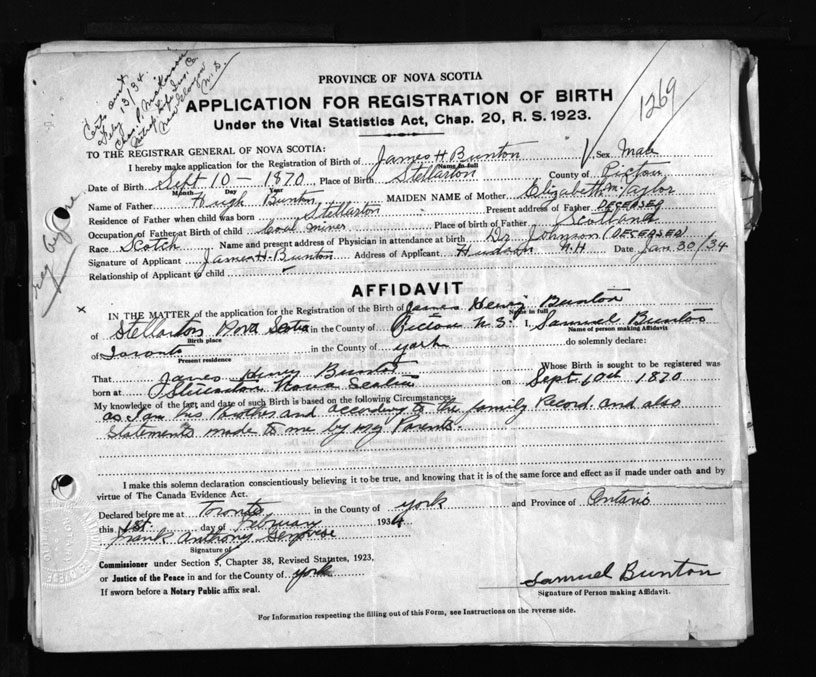 Certs sent
Feby 13/34.
Chas. P.
Metrop. Life Ins. Co.
New Glasgow
N.S.
1269
PROVINCE OF NOVA SCOTIA
APPLICATION FOR REGISTRATION OF BIRTH
Under the Vital Statistics Act, Chap. 20, R. S. 1923.
TO THE REGISTRAR GENERAL OF NOVA SCOTIA:
I hereby make application for the Registration of Birth of James H Bunton Sex Male
Name in full
Date of Birth Sept 10 - 1870 Place of Birth Stellarton County of Pictou
Month Day Year
Name of Father Hugh Bunton MAIDEN NAME of Mother Elizabeth M Taylor
Residence of Father when child was born Stellarton Present address of Father DECEASED
Occupation of Father at Birth of child Coal miner Place of birth of Father Scotland
Race Scotch Name and present address of Physician in attendance at birth Dr Johnson (DECEASED)
Signature of Applicant James H. Bunton Address of Applicant Hudson N.H Date Jan 30/34
Relationship of Applicant to child
reg before
AFFIDAVIT
x
IN THE MATTER of the application for the Registration of the Birth of James Henry Bunton
Name in full
of Stellarton Nova Scotia in the County of Pictou N.S. I, Samuel Bunton
Birth place Name of person making Affidavit
of Toronto in the County of York do solemnly declare:
Present residence
That James Henry Bunton Whose Birth is sought to be registered was
born at Stellarton Nova Scotia on Sept 10th 1870
My knowledge of the fact and date of such Birth is based on the following Circumstances:
as I am his Brother and according to the family Record and also
Statements made to me by my Parents
I make this solemn declaration conscientiously believing it to be true, and knowing that it is of the same force and effect as if made under oath and by
virtue of The Canada Evidence Act.
Declared before me at Toronto in the County of York and Province of Ontario
this 1st day of February 1934
Frank Anthony
Signature of
Commissioner under Section 5, Chapter 38, Revised Statutes, 1923,
or Justice of the Peace in and for the County of York
If sworn before a Notary Public affix seal.
Samuel Bunton
Signature of Person making Affidavit.
For Information respecting the filling out of this Form, see Instructions on the reverse side.